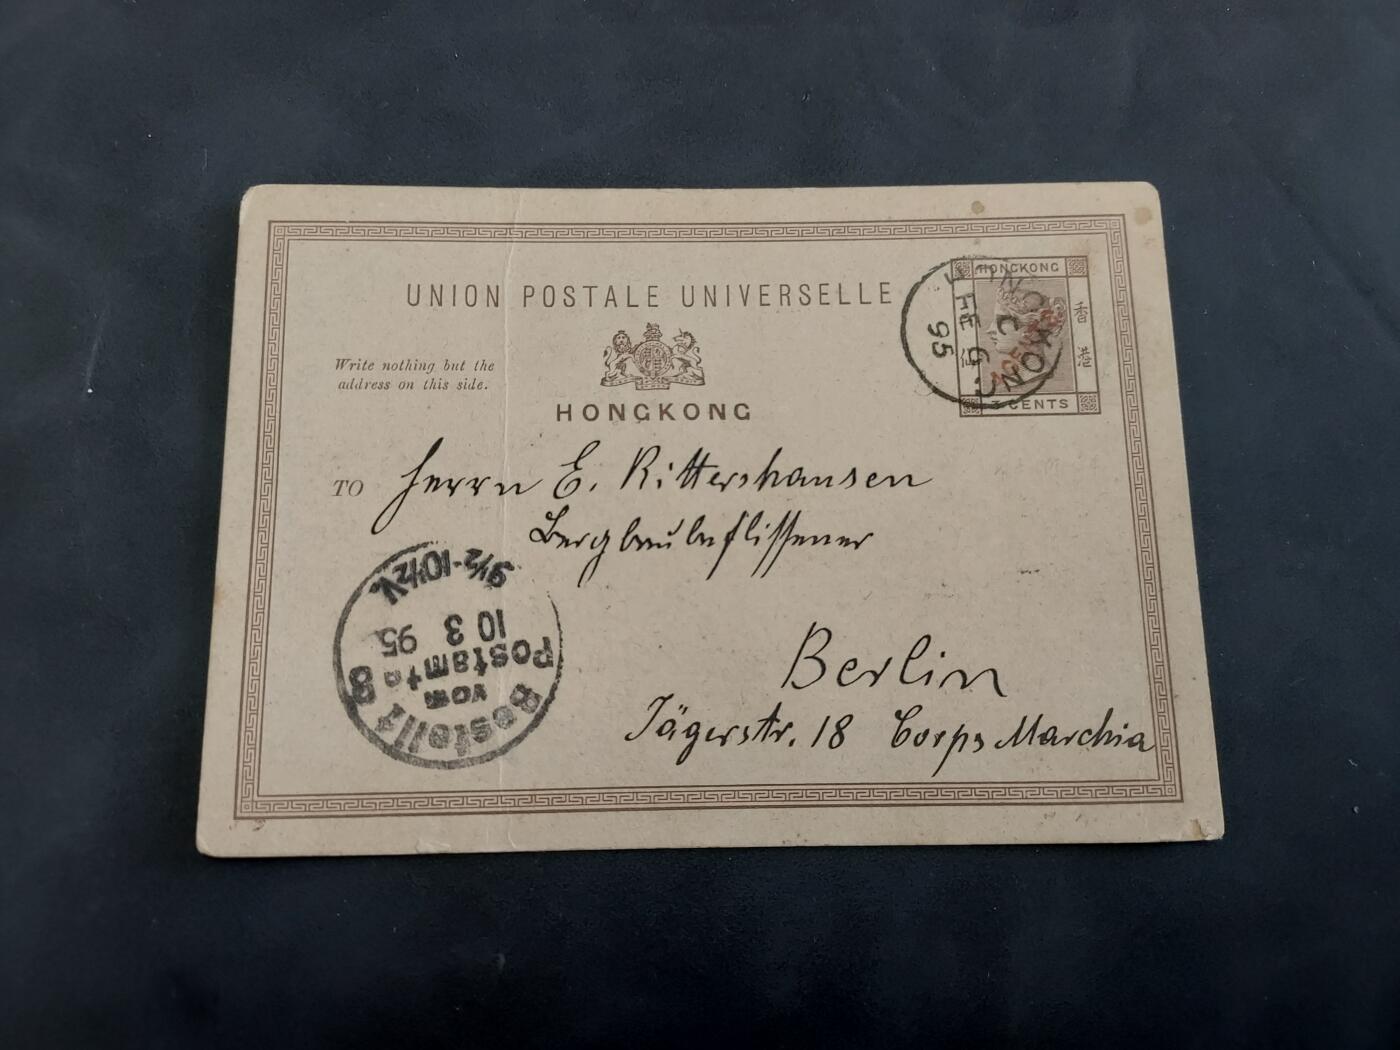 UNION POSTALE UNIVERSELLE
HONGKONG
香港
3 CENTS
HONG KONG
C
FE 6
95
Write nothing but the
address on this side.
HONGKONG
TO Herrn E. Rittershausen
Bergbaubeflissener
Berlin
Jägerstr. 18 Corps Marchia
Bestellt
vom
Postamte 8
10 3 95.
9½-10½V.